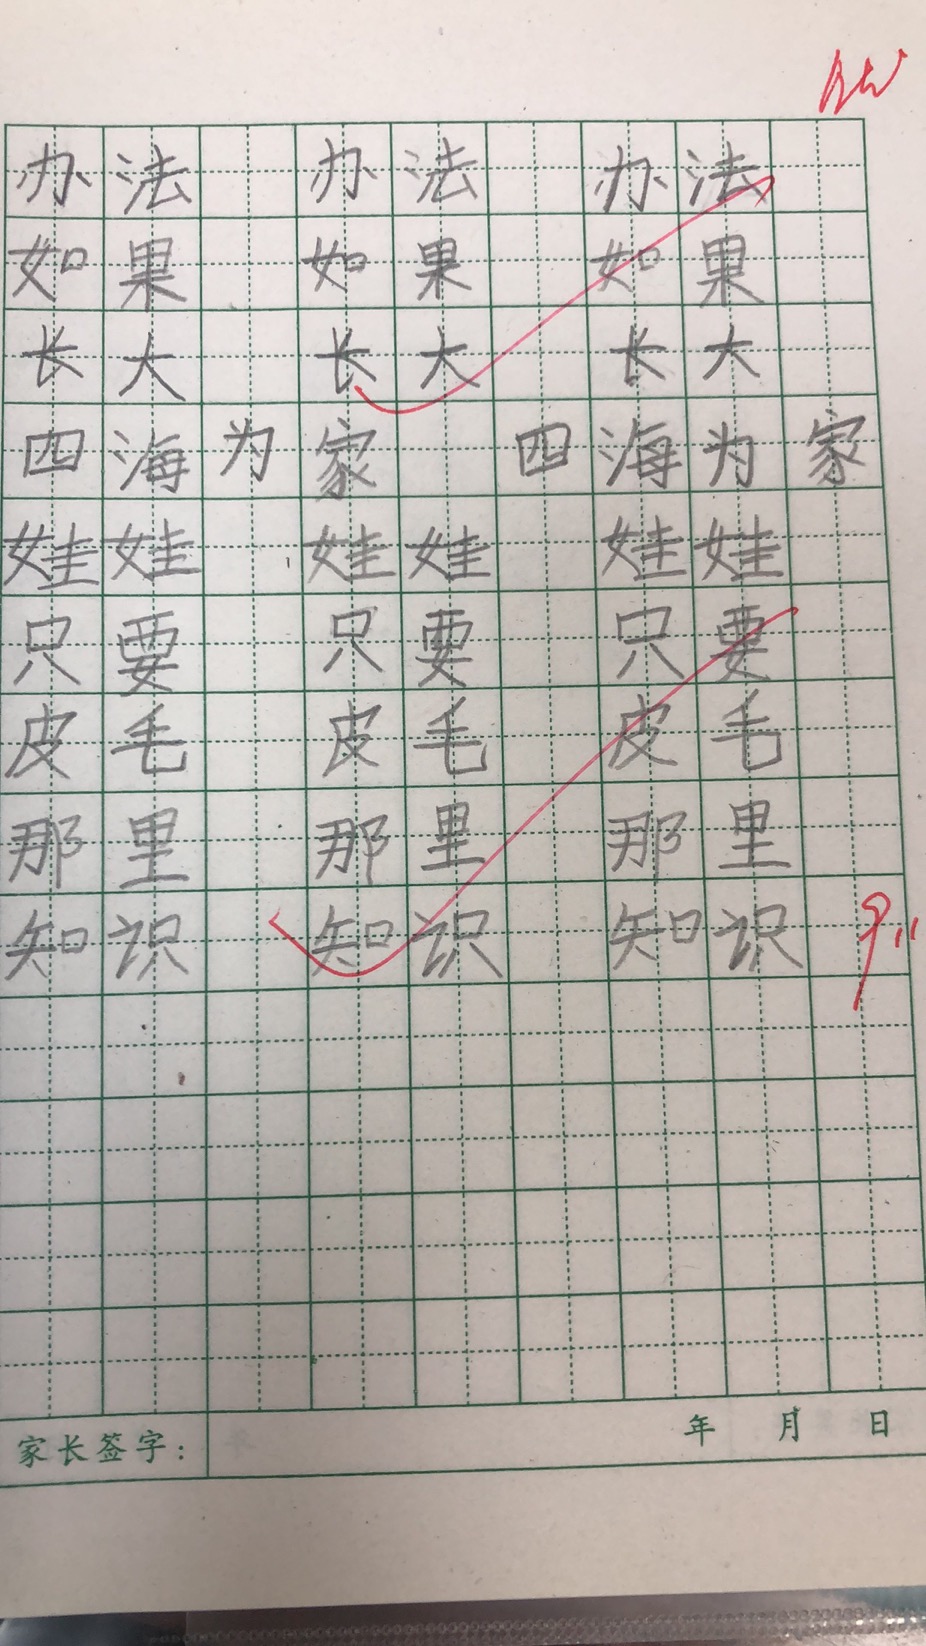 办法 办法 办法
如果 如果 如果
长大 长大 长大
四海为家 四海为家
娃娃 娃娃 娃娃
只要 只要 只要
皮毛 皮毛 皮毛
那里 那里 那里
知识 知识 知识
家长签字： 年 月 日